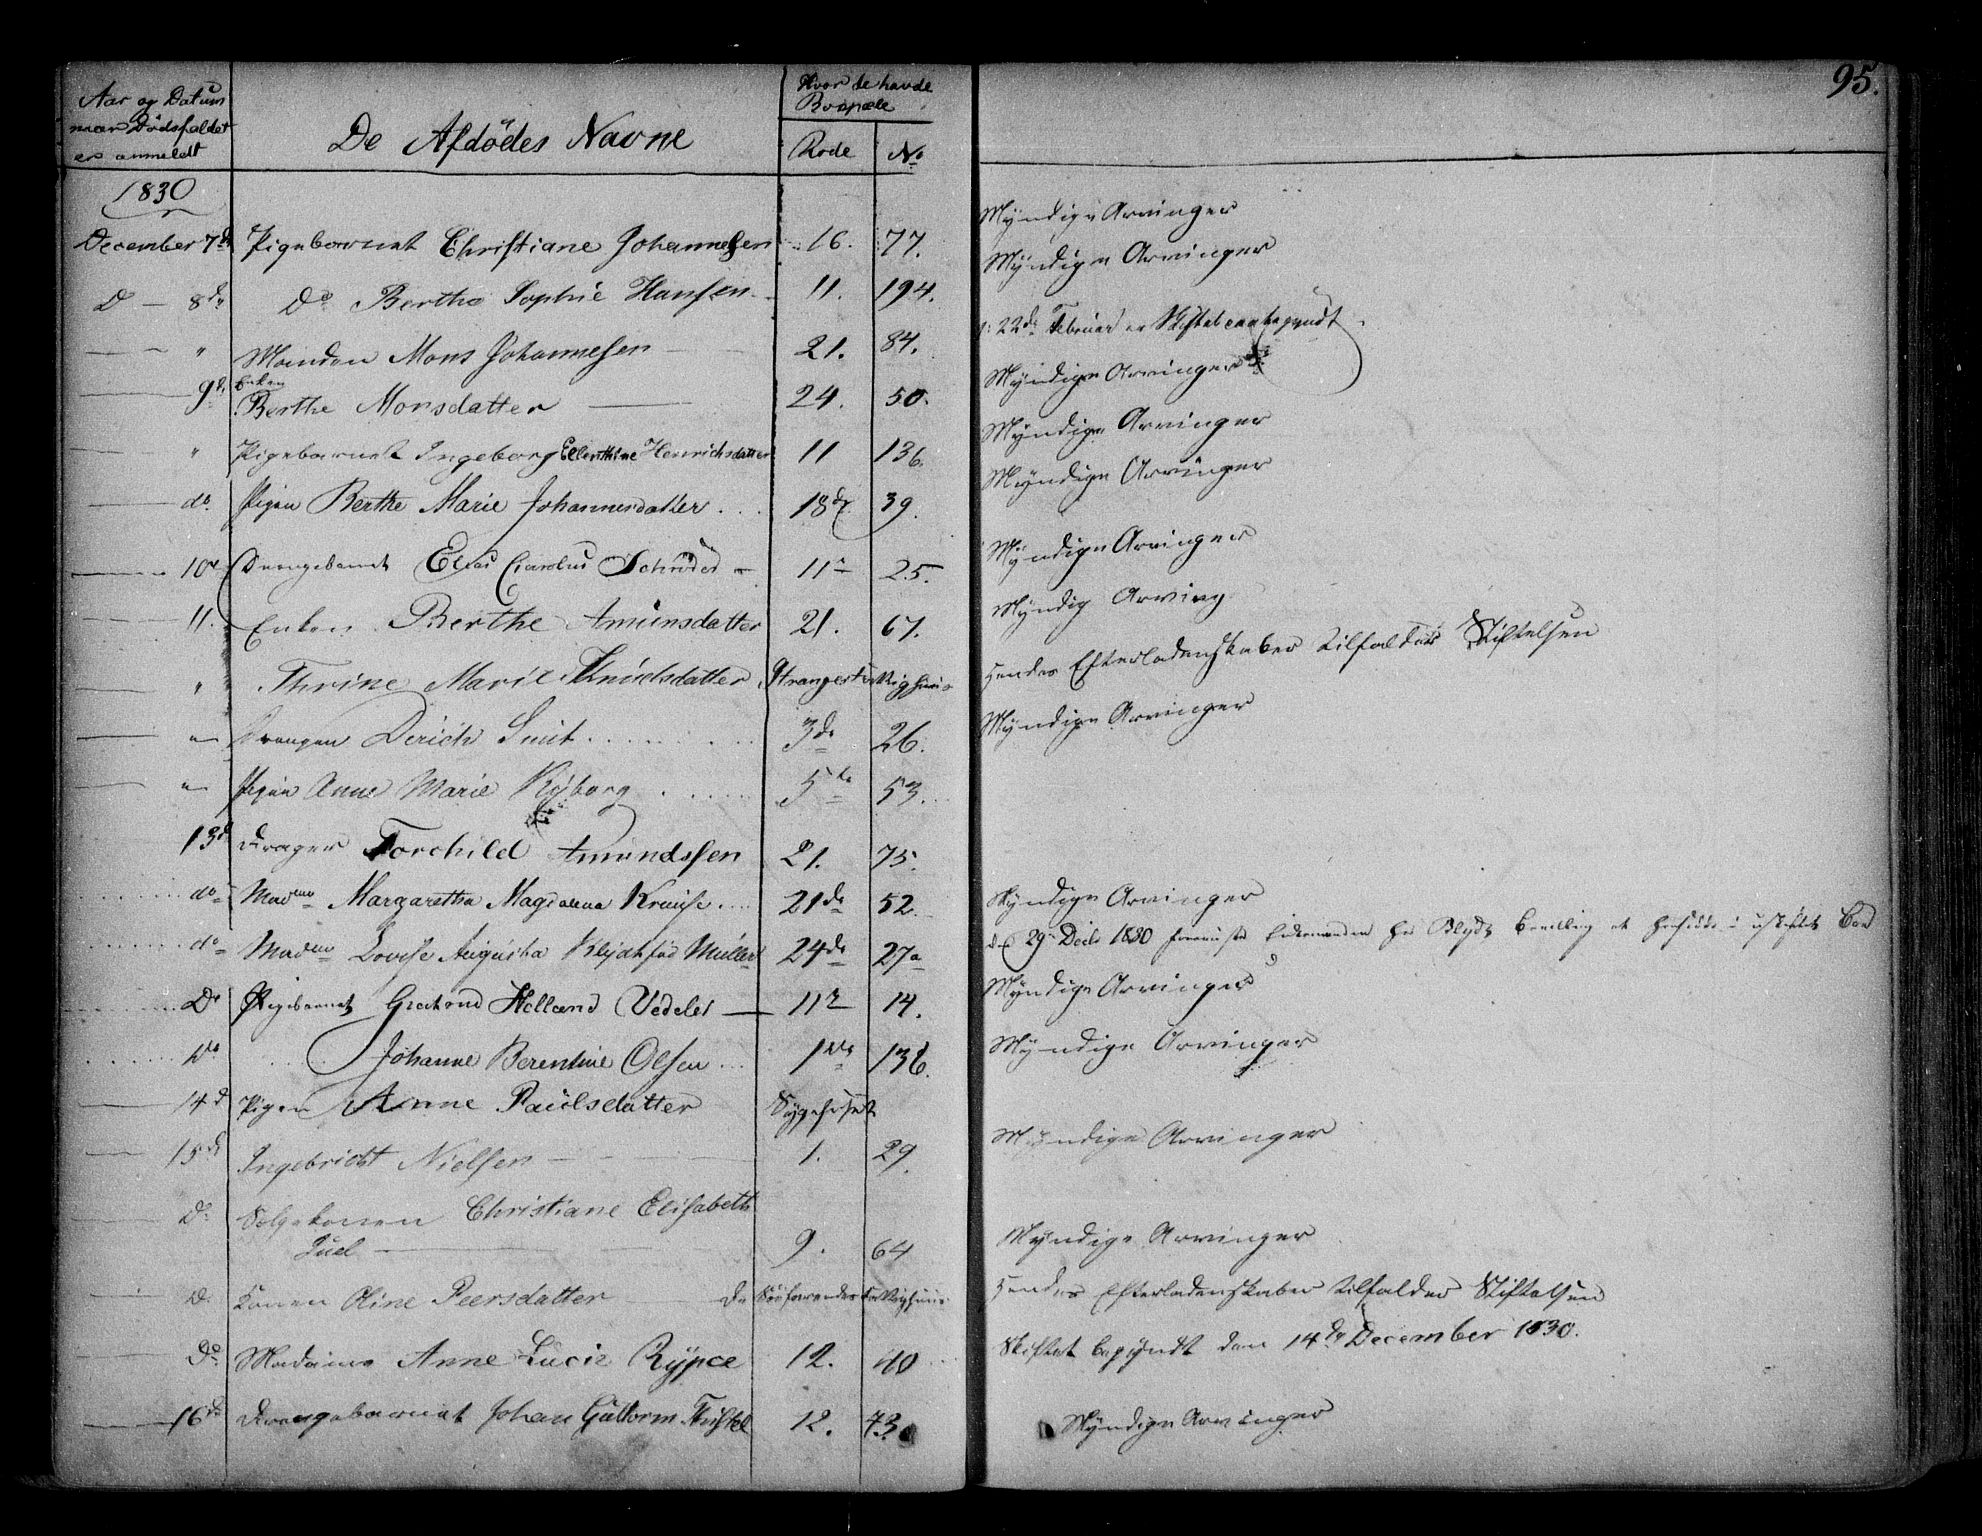 95.
Aar og Datum
naar Dødsfaldet
er anmeldt
De Afdödes Navne
Hvor de havde
Bopæle
Rode No
1830
December 7de Pigebarnet Christiane Johannesen 16. 77. Myndige Arvinger
D — 8de Do Berthe Sophie Hansen 11. 194. Myndige Arvinger
— " Manden Mons Johannesen — 21. 84. 22de Februar er Skiftet begyndt
— 9de Enken
Berthe Monsdatter — 24. 50. Myndige Arvinger
" Pigebarnet Ingeborg Ellerthine Henrichsdatter 11 136. Myndige Arvinger
— do. Pigen Berthe Marie Johannesdatter . . . 18de 39. Myndige Arvinger
— 10de Drengebarnet Elias Carolus Schröder — 11te 25. Myndige Arvinger
— 11. Enken Berthe Amunsdatter 21. 67. Myndig Arving
— " Thrine Marie Knudsdatter Strangesfattighuus hendes Efterladenskaber tilfalder Stiftelsen
— " Drengen Dirich Smit . . . . . 3de 26. Myndige Arvinger
— " Pigen Anne Marie Nyborg . . . . 5te 53.
13de Drager Torchild Amundssen 21. 75.
do Madme Margaretha Magdalena Kruuse . . . 21de 52. Myndige Arvinger
do Madme Lovise Augusta Blydt fød Müller 24de 27a 29 Decbr 1830 Enkemanden Hr Blydt Bevilling at hensidde i uskiftet Boe
Do Pigebarnet Gertrud Helland Vedeler — 11te 14. Myndige Arvinger
Do Johanne Berentine Olsen . . . 1ste 136. Myndige Arvinger
— 14d Pigen Anne Paulsdatter Sygehuset
— 15de Ingebricht Nielsen — 1. 29. Myndige Arvinger
— Do Selgekonen Christiane Elisabeth
Juel — 9. 64 Myndige Arvinger
— D. Konen Oline Peersdatter De Søefarendes Fattighuus hendes Efterladenskaber tilfalder Stiftelsen
— Do Madame Anne Lucie Rÿpce 12. 40 Skiftet begyndt den 14de December 1830.
— 16de Drengebarnet Johan Guttorm Tristel 12. 73. Myndige Arvinger